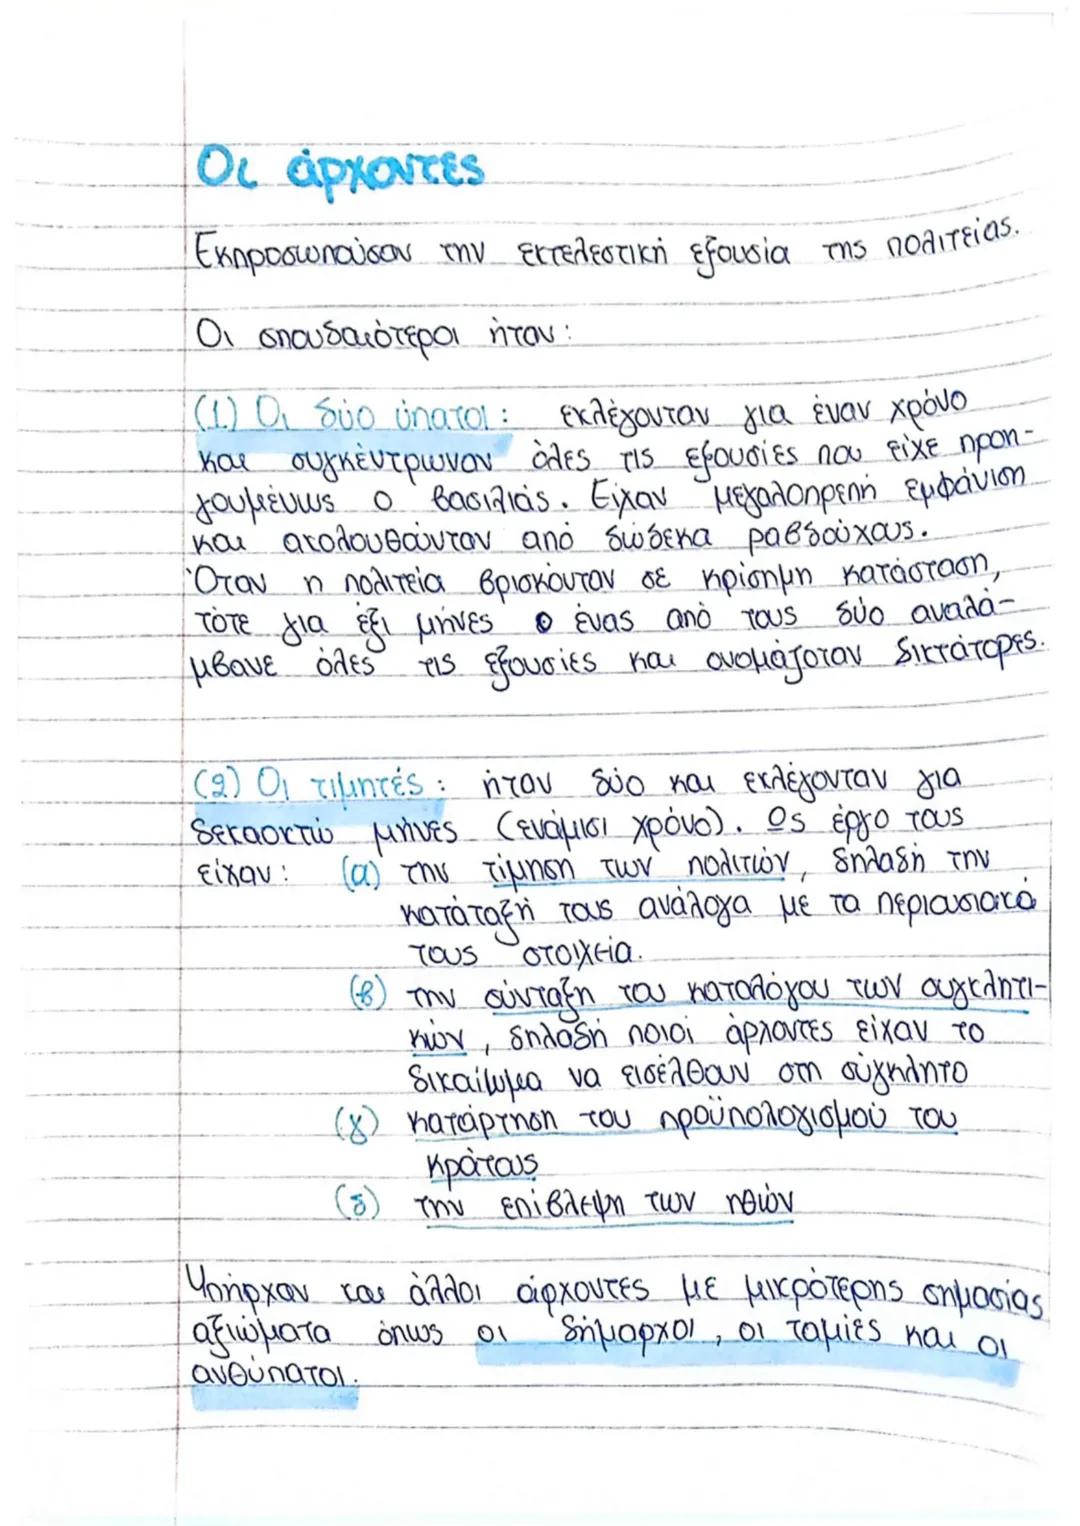 Οι άρχοντες
Εκπροσωπούσαν την εκτελεστική εξουσία της πολιτείας.
Οι σπουδαιότεροι ήταν:
(1) Οι δύο ύπατοι: εκλέγονταν για έναν χρόνο
και συγκέντρωναν όλες τις εξουσίες που είχε προη-
γουμένως ο βασιλιάς. Είχαν μεγαλοπρεπή εμφάνιση
και ακολουθούνταν από δώδεκα ραβδούχους.
Όταν η πολιτεία βρισκόνταν σε κρίσημη κατάσταση,
τότε για έξι μήνες ο ένας από τους δύο αναλά-
μβανε όλες τις εξουσίες και ονομάζοταν δικτάτορες.
(2) Οι τιμητές: ήταν δύο και εκλέγονταν για
δεκαοκτώ μήνες (ενάμισι χρόνο). Ως έργο τους
είχαν: (α) την τίμηση των πολιτών, δηλαδή την
κατάταξή τους ανάλογα με τα περιουσιακά
τους στοιχεία.
(β) την σύνταξη του καταλόγου των συγκλητι-
κών, δηλαδή ποιοι άρχοντες είχαν το
δικαίωμα να εισέλθουν στη σύγκλητο
(γ) κατάρτηση του προϋπολογισμού του
κράτους
(δ) την επίβλεψη των ηθών
Υπήρχαν και άλλοι άρχοντες με μικρότερης σημασίας
αξιώματα όπως οι δήμαρχοι, οι ταμίες και οι
ανθύπατοι.